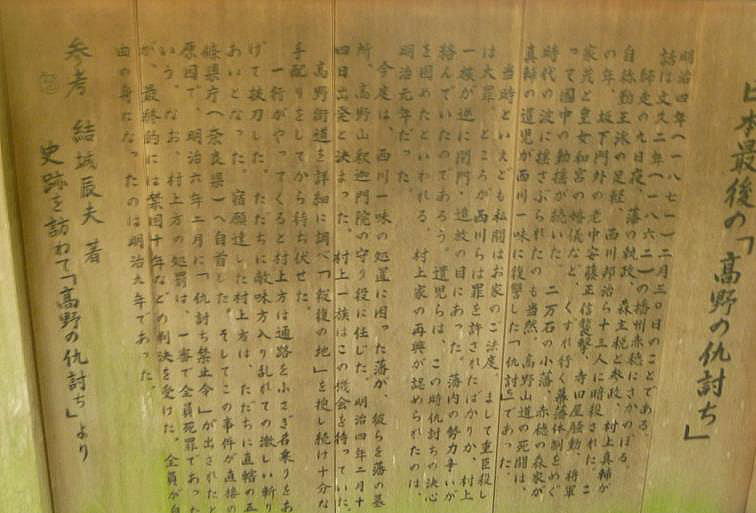 日本最後の「高野の仇討ち」
明治四年(一八七一)二月三〇日のことである。
話は文久二年(一八六二)の播州赤穂にさかのぼる。
師走の九日夜、藩の執政、森主税と参政、村上真輔が
自称勤王派の足軽、西川邦治ら十三人に暗殺された。こ
の年、坂下門外の老中安藤正信襲撃、寺田屋騒動、将軍
家茂と皇女和宮の婚儀など、くずれ行く幕藩体制をめぐ
って国中の動揺が続いた。二万石の小藩、赤穂の森家が
時代の波に揺さぶられたのも当然、高野山道の死闘は、
真輔の遺児が西川一味に復讐した「仇討」であった。
当時といえども私闘はお家のご法度、まして重臣殺し
は大罪、ところが西川らは罪を許されたばかりか、村上
一族が逆に閉門・追放の目にあった。藩内の勢力争いが
絡んでいたのであろう。遺児らは、この時仇討ちの決心
を固めたといわれる。村上家の再興が認められたのは、
明治元年だった。
今度は、西川一味の処置に困った藩が、彼らを藩の墓
所、高野山釈迦門院の守り役に任じた。明治四年二月十
四日出発と決まった。村上一族はこの機会を待っていた。
高野街道を詳細に調べ「報復の地」を捜し続け十分な
手配りをしてから待ち伏せた。
一行がやってくると村上方は通路をふさぎ名乗りをあ
げて抜刀した。たちまち敵味方入り乱れての激しい斬り
あいとなった。宿願達した村上方は、ただちに直轄の五
條県庁(奈良県)へ自首した。そしてこの事件が直接の
原因で、明治六年二月に「仇討ち禁止令」が出されたと
いう。なお、村上方の処罰は、一審で全員死罪であった
が、最終的には禁固十年などの判決を受けた。全員が自
由の身になったのは明治九年であった。
参考 結城辰夫 著
史跡を訪ねて「高野の仇討ち」より